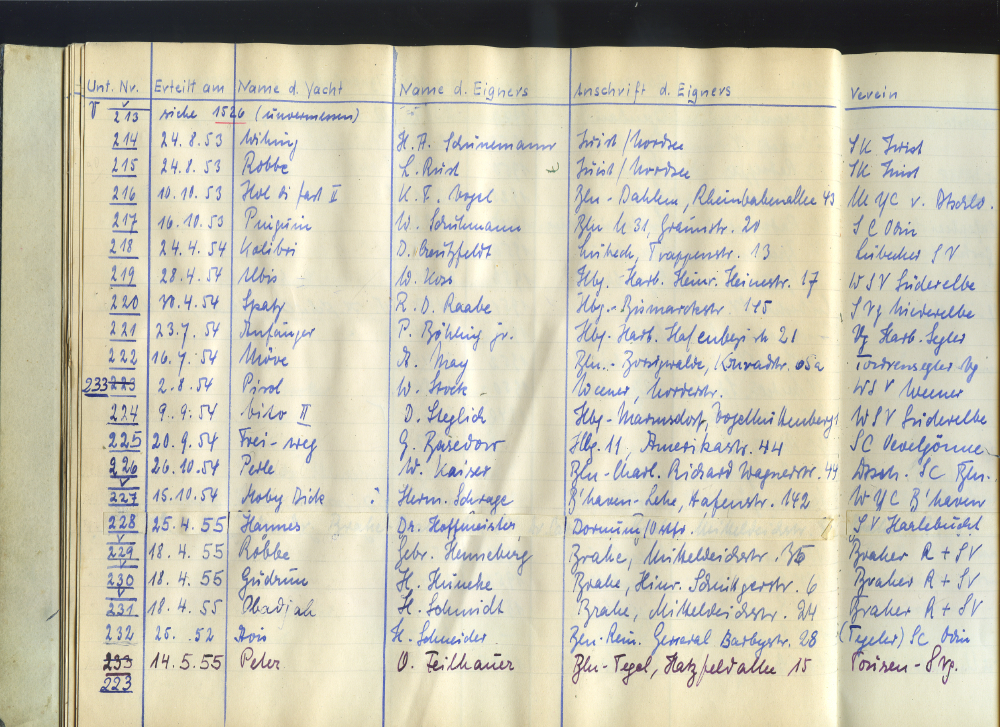 Unt. Nr. Erteilt am Name d. Yacht Name d. Eigners Anschrift d. Eigners Verein
V 213 siehe 1526 (unvermessen)
214 24.8.53 Wiking H. A. Schünemann Juist/Nordsee SK Juist
215 24.8.53 Robbe L. Rust Juist/Nordsee SK Juist
216 10.10.53 Hol di fast II K. F. Vogel Bln-Dahlem, Rheinbabenallee 43 M YC v. Dtschld.
217 16.10.53 Pinguin W. Schünemann Bln N 31, Graunstr. 20 SC Odin
218 24.4.54 Kolibri D. Creutzfeldt Lübeck, Trappenstr. 13 Lübecker SV
219 28.4.54 W. Koss Hbg. Harb. Heinr. Heinestr. 17 WSV Süderelbe
220 30.4.54 Spatz R. D. Raabe Hbg.-Bismarckstr. 115 SVg Niederelbe
221 23.7.54 Anfänger P. Böhling jr. Hbg. Harb. Hafenbez. 21 Vg Harb. Segler
222 16.7.54 Möve A. May Bln.-Borsigwalde, Conradstr. Tourensegler Vg
233 223 2.8.54 Pirol W. Stock Weener, Norderstr. WSV Weener
224 9.9.54 II D. Steglich Hbg-Marmsdorf, WSV Süderelbe
225 20.9.54 Frei-weg G. Basedow Hbg. 11, Amerikastr. 44 SC Oevelgönne
226 26.10.54 Perle W. Kaiser Bln-Charl. Richard Wagnerstr. 44 Dtsch. SC Bln.
227 15.10.54 Moby Dick Herm. Schrage B'haven-Lehe, Hafenstr. 142 WYC B'haven
228 25.4.55 Hannes Dr. Hoffmeister Dornum/Ostfr. SV Harlebucht
229 18.4.55 Robbe Gebr. Henneberg Brake, Mitteldeichstr. Braker R + SV
230 18.4.55 Gudrun H. Brake, Heinr. Schnitgerstr. 6 Braker R + SV
231 18.4.55 Obadjah H. Schmidt Brake, Mitteldeichstr. 24 Braker R + SV
232 25. .52 H. Schneider Bln-Rein. General Barbystr. 28 (Tegeler) SC Odin
233 14.5.55 Peter O. Feilhauer Bln-Tegel, Hatzfeldallee 15 Touren-SVg.
223